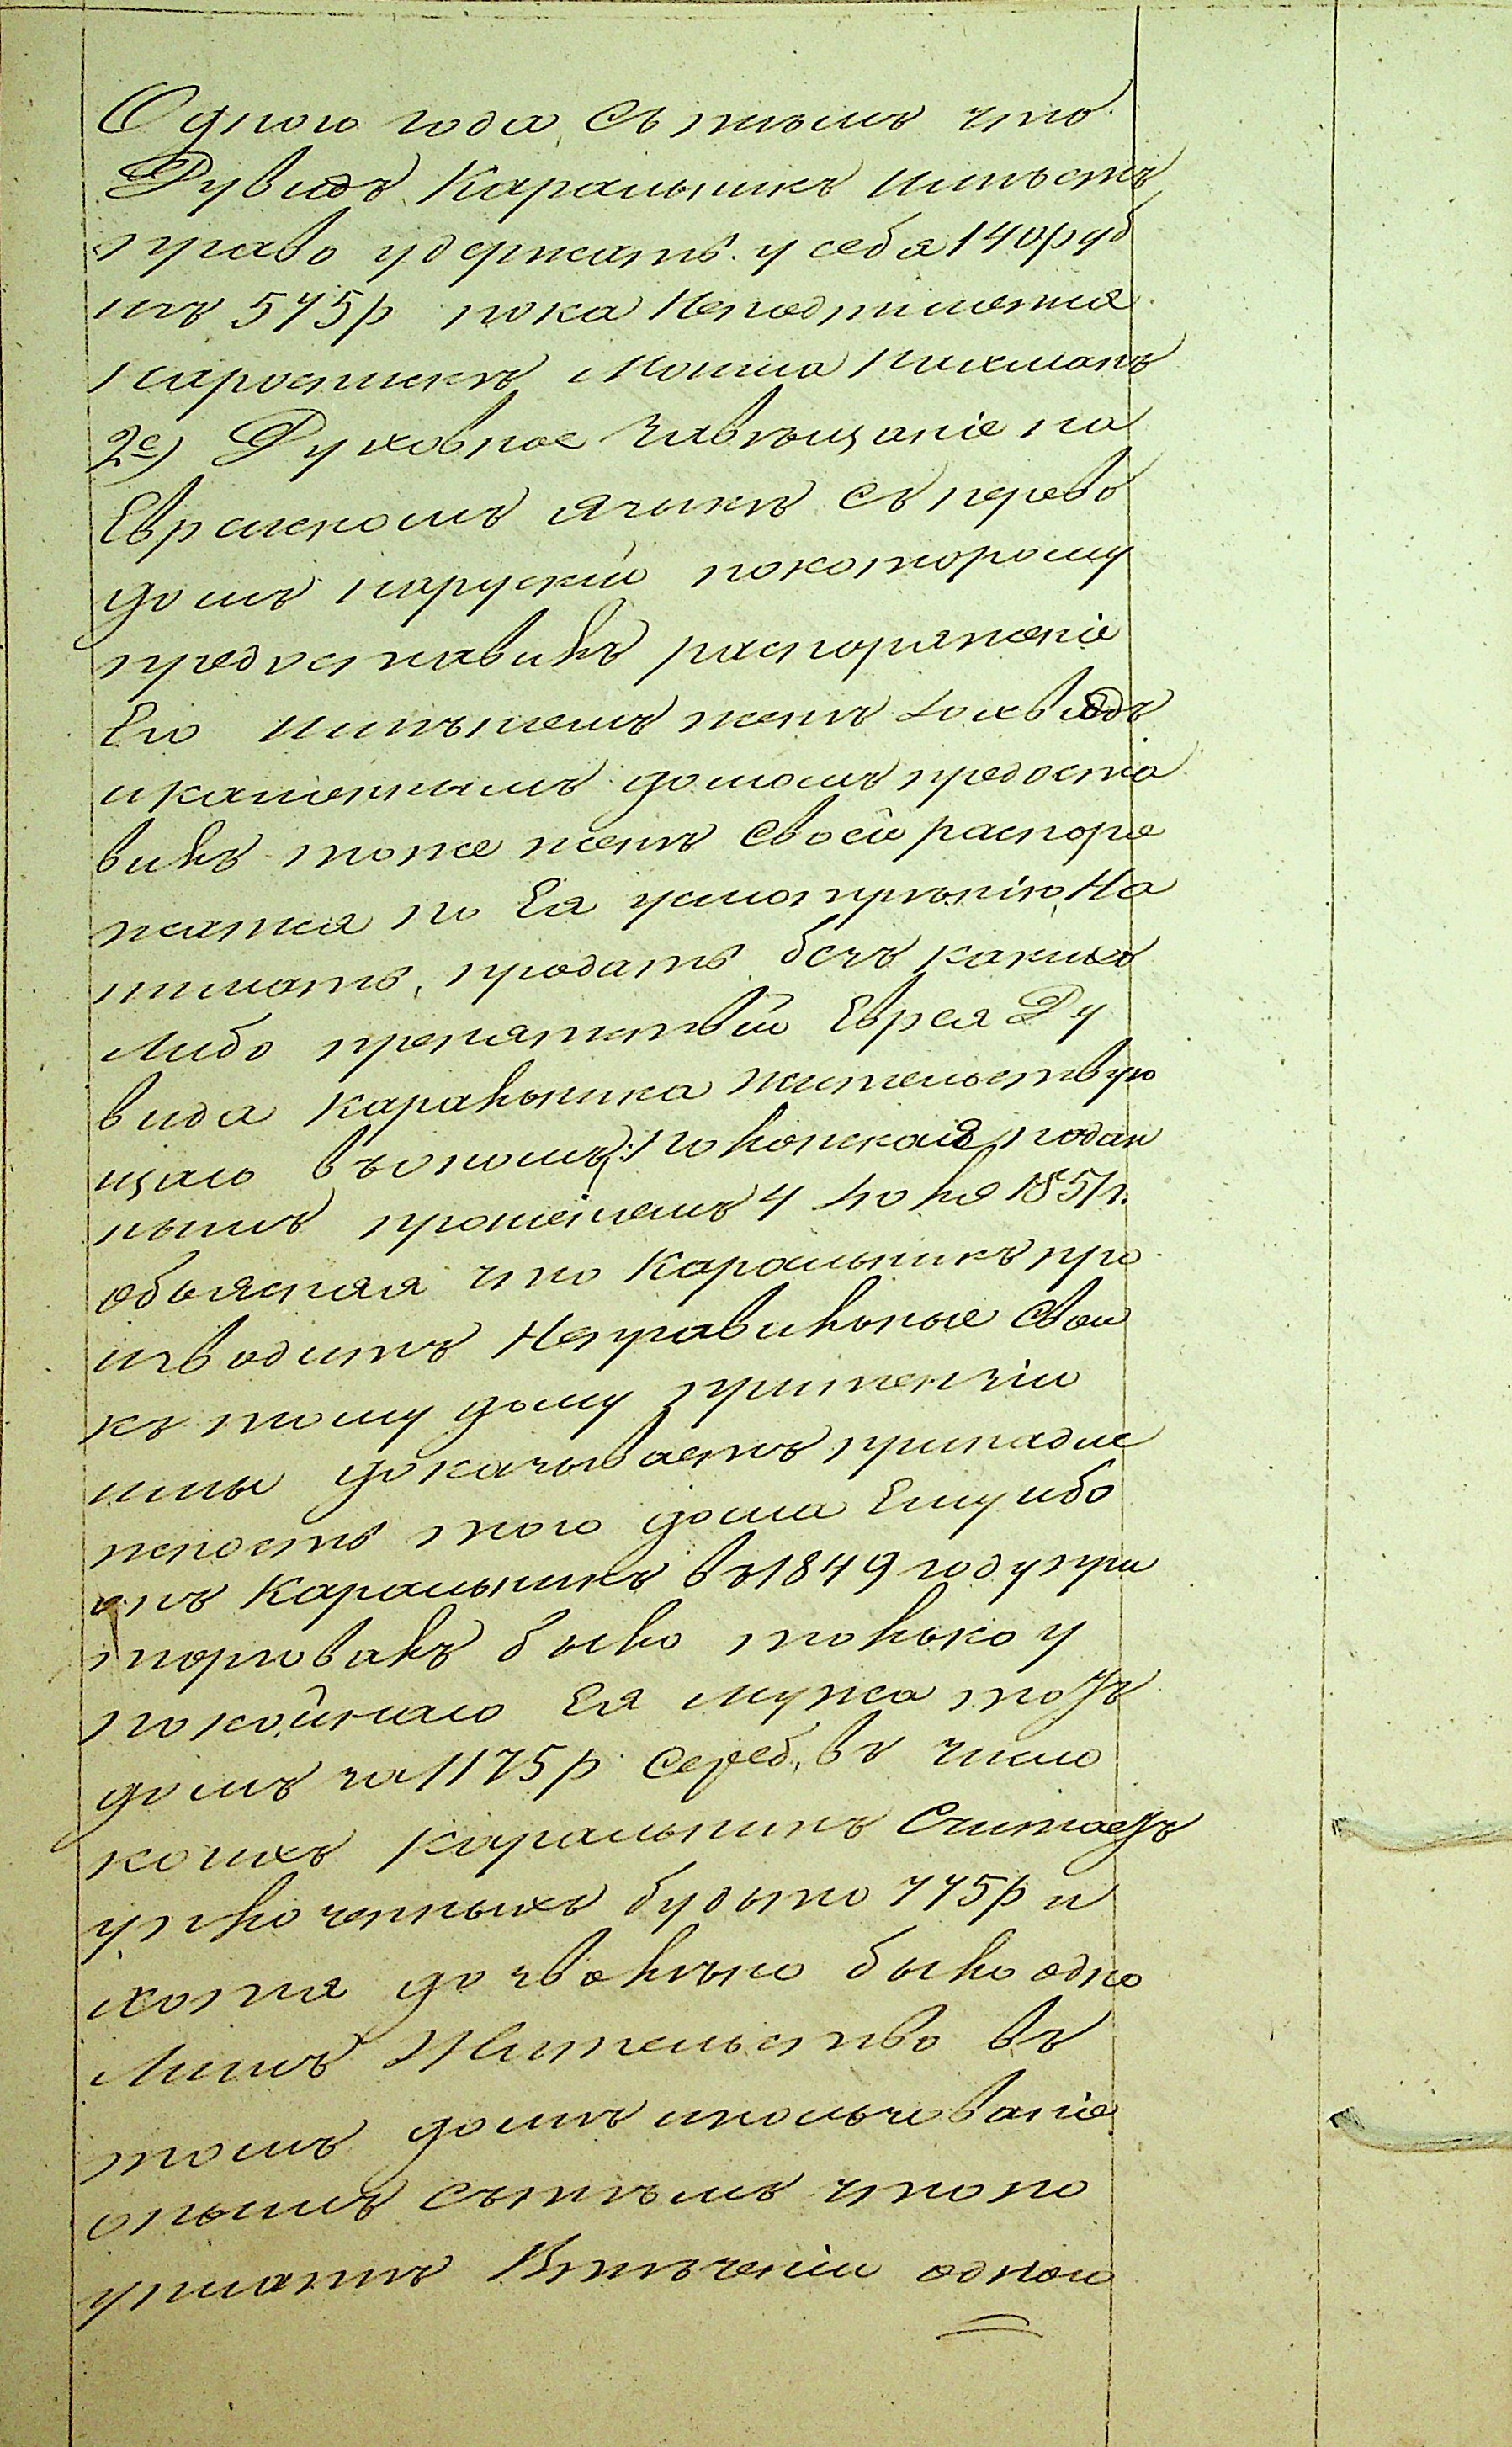 Одного года съ темъ что
Рувидъ Каральникъ иметъ
право удержать у себя 140 руб
изъ 575 р пока Неподпишется
наросписке Мошка Нихманъ
2е) Духовное Завещаніе на
Еврейскомъ языке съ перево
домъ наруский покоторому
предоставилъ распоряженіе
Его имуществомъ жене
и каменнымъ домомъ предоста
вилъ тоже жене своей распоря
жатся по Ея усмотренію, На
нимать, продать безъ какихъ
либо препятствій Еврея Ру
вида Каральника жительствую
щаго въ ономъ поданн
нымъ прошеніемъ 4 Іюля 1851 г.
объясняя что Каральникъ про
изводитъ Неправильные свои
къ тому дому притензіи
имы доказываетъ принадле
жность того дома Ему ибо
онъ Каральникъ въ 1849 году при
торговалъ было только у
покойнаго Ея мужа тотъ
домъ за 1175 р сереб, въ число
коихъ Каральникъ Считаетъ
уплоченныхъ будьто 775 р и
хотя дозволено было одно
лишъ Жительство въ
томъ доме ипользованіе
онымъ съ темъ что по
уплате Втеченіи одного